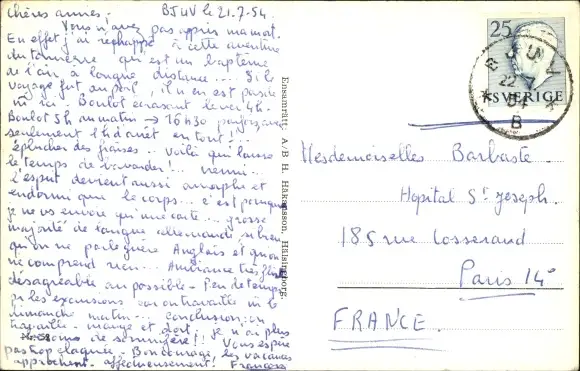 Chères amies, BJUV le 21.7.54.
Vous n'avez pas appris ma mort.
En effet j'ai réchappé à cette aventure
du tonnerre qui est un baptême
de l'air à longue distance... Si le
voyage fut au poil, il n'en est pas de
m ici. Boulot écrasant lever 4h.
Boulot 5h du matin → 16h30 parfois avec
seulement 1h d'arrêt en tout!...
éplucher des fraises... Voilà qui laisse
le temps de !.. remni...
L'esprit devient aussi amorphe et
endormi que le corps... c'est pourquoi
je ne vs envoie qu'une carte... grosse
majorité de langue allemande si bien
qu'on ne parle guère Anglais et qu'on
ne comprend rien... Ambiance très
désagréable au possible. Peu de temps
pr les excursions car on travaille m le
dimanche matin... conclusion: on
travaille - mange et dort, je n'ai plus
de sommifère!! Vous espère
pas trop claquées - Bon courage, les vacances
approchent. affectueusement! Françoise
Ensamrätt A/B H. Håkansson, Hälsingborg.
25
SVERIGE
BJUV
22 7
54
B
Mesdemoiselles Barbaste.
Hopital St Joseph.
185 rue Losserand
Paris 14e
FRANCE.